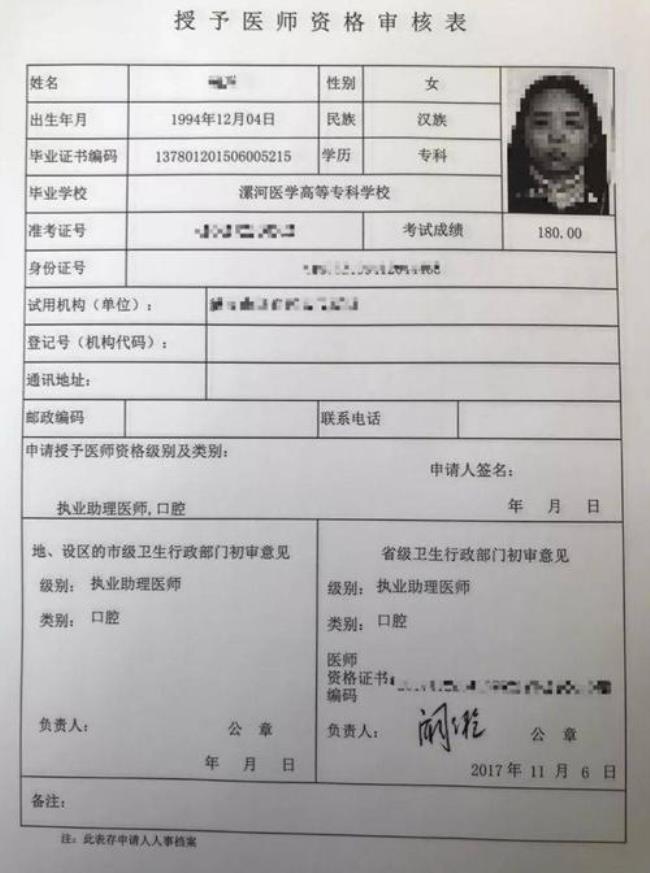 授予医师资格审核表
姓名 性别 女
出生年月 1994年12月04日 民族 汉族
毕业证书编码 137801201506005215 学历 专科
毕业学校 漯河医学高等专科学校
准考证号 考试成绩 180.00
身份证号
试用机构（单位）：
登记号（机构代码）：
通讯地址：
邮政编码 联系电话
申请授予医师资格级别及类别：
申请人签名：
执业助理医师,口腔 年 月 日
地、设区的市级卫生行政部门初审意见
级别： 执业助理医师
类别： 口腔
负责人： 公 章
年 月 日
省级卫生行政部门初审意见
级别： 执业助理医师
类别： 口腔
医师
资格证书
编码
负责人： 公 章
2017 年 11 月 6 日
备注：
注：此表存申请人人事档案